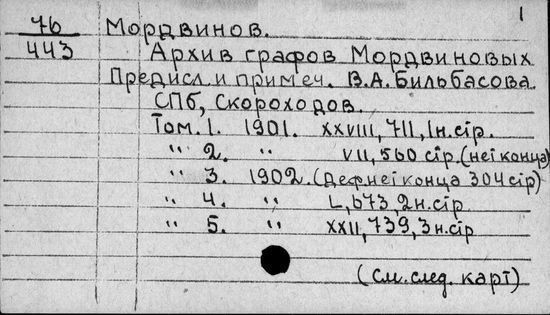 1
76 Мордвинов.
443 Архив графов Мордвиновых
Предисл. и примеч. В.А. Бильбасова.
СПб, Скороходов.
Том. 1. 1901. XXVIII, 711, 1 н. стр.
" 2. " VII, 560 стр. (нет конца)
" 3. 1902. (Деф. нет конца 304 стр)
" 4. " L, 673, 2 н. стр.
" 5. " XXII, 739, 3 н. стр
(См. след. карт)